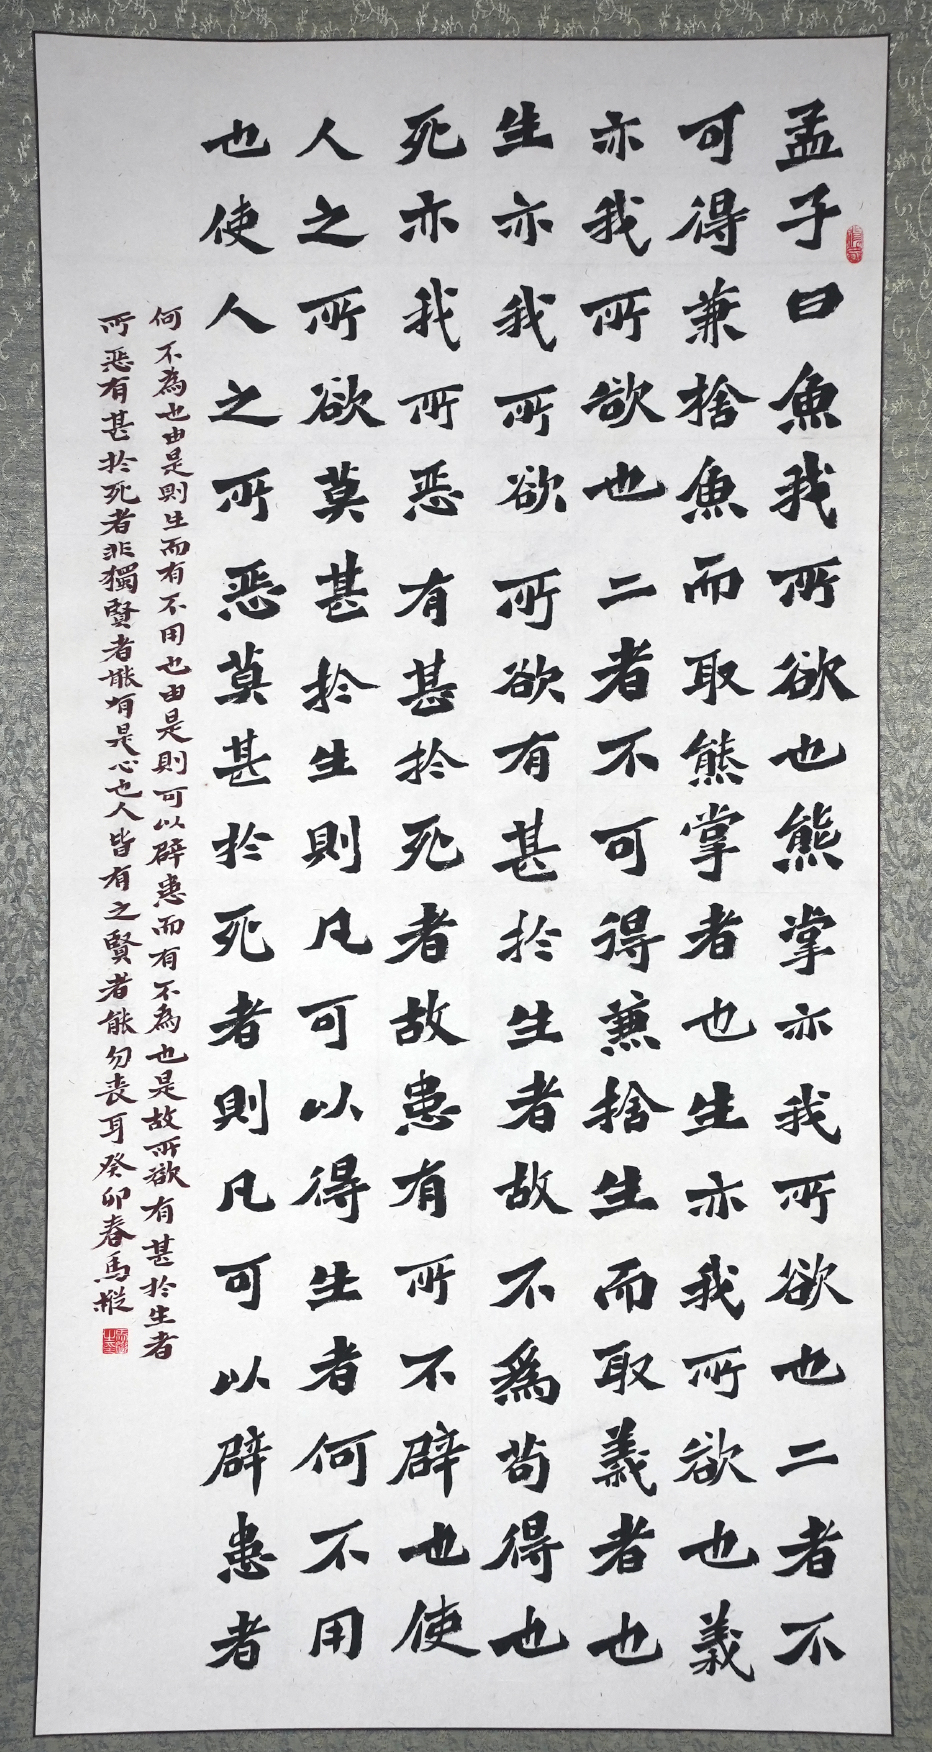 孟子曰魚我所欲也熊掌亦我所欲也二者不
可得兼捨魚而取熊掌者也生亦我所欲也義
亦我所欲也二者不可得兼捨生而取義者也
生亦我所欲所欲有甚於生者故不爲苟得也
死亦我所惡有甚於死者故患有所不辟也使
人之所欲莫甚於生則凡可以得生者何不用
也使人之所惡莫甚於死者則凡可以辟患者
何不為也由是則生而有不用也由是則可以辟患而有不為也是故所欲有甚於生者
所惡有甚於死者非獨賢者能有是心也人皆有之賢者能勿喪耳癸卯春馬